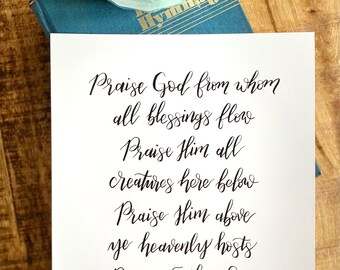 Hymn
Praise God from whom
all blessings flow
Praise Him all
creatures here below
Praise Him above
ye heavenly hosts